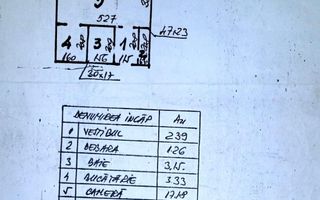 5
527
47×23
4
3
1
160
156
115
20×17
DENUMIREA ÎNCĂP AU
1 VESTIBUL 2.39
2 DEBARA 1.26
3 BAIE 3,15.
4 BUCĂTĂRIE 3.33
5 CAMERĂ 17.18